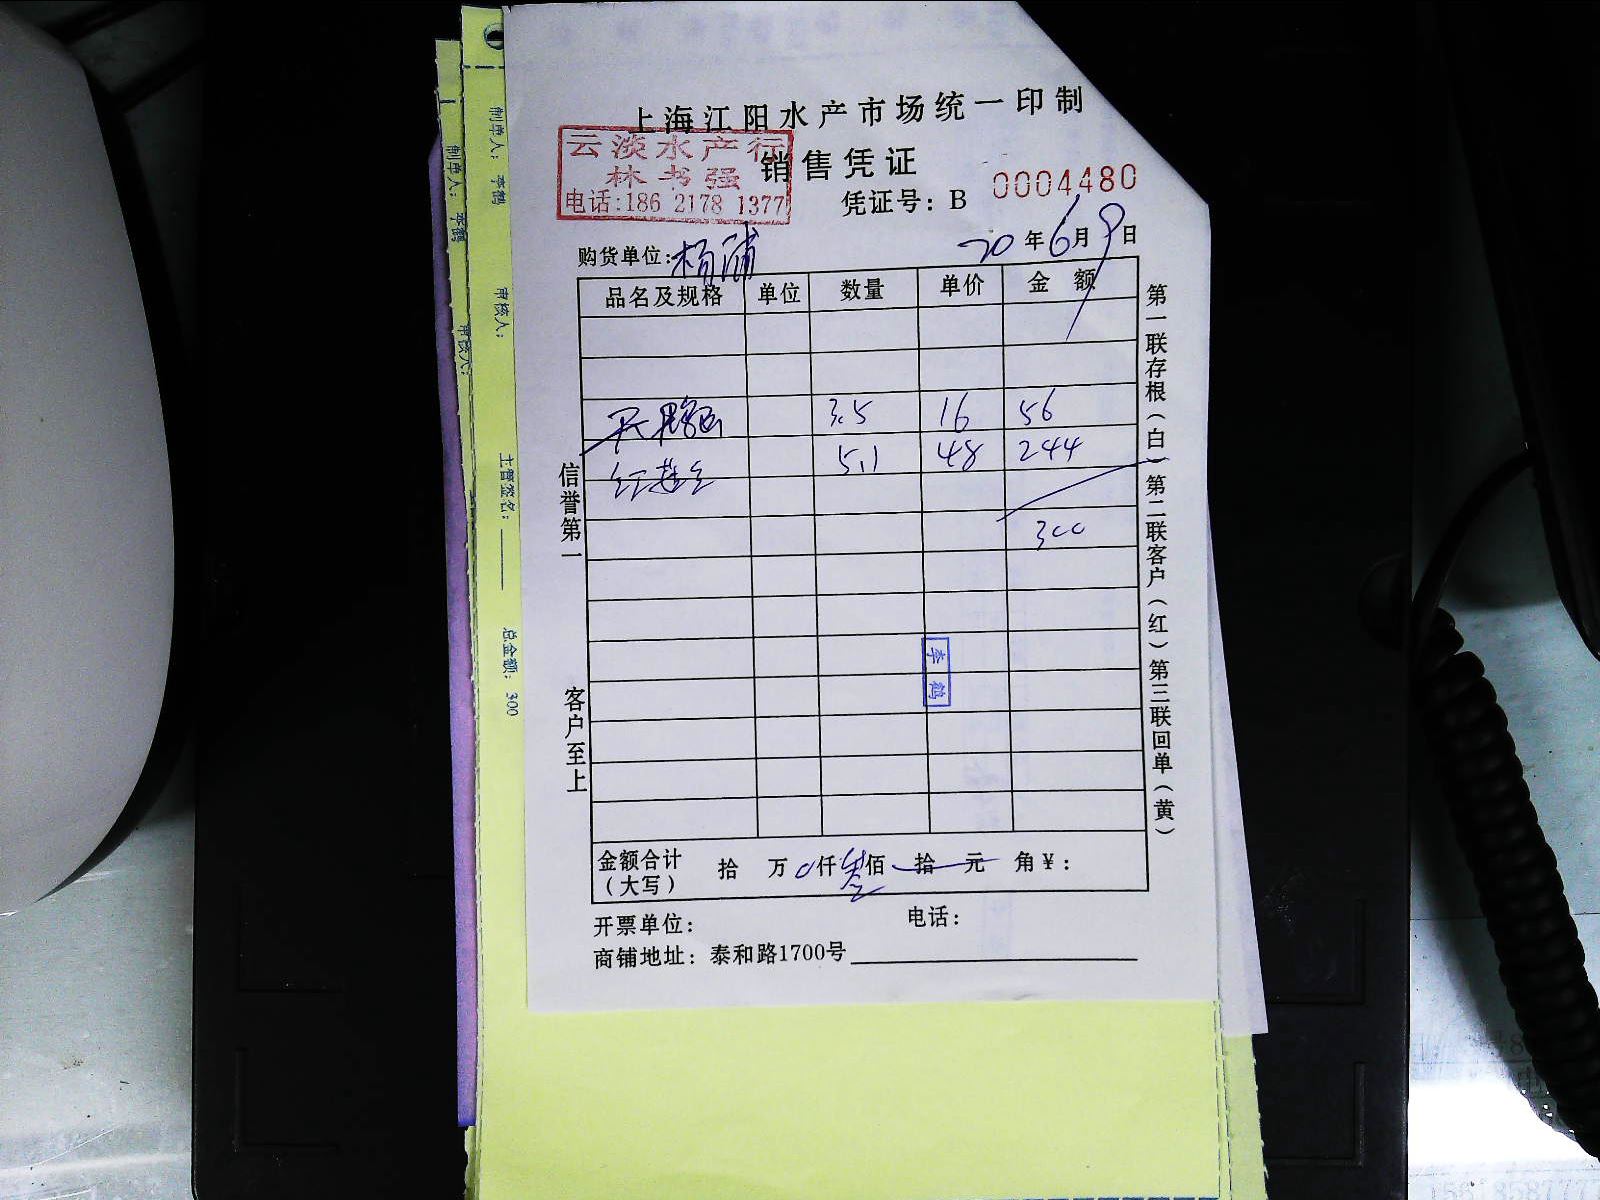 上海江阳水产市场统一印制
云淡水产行
林书强
电话:186 2178 1377
销售凭证
凭证号: B 0004480
购货单位: 杨浦 20年6月9日
品名及规格 单位 数量 单价 金额
3.5 16 56
5.1 48 244
300
李鹤
金额合计(大写) 拾 万0仟叁佰 拾 元 角¥:
开票单位: 电话:
商铺地址: 泰和路1700号
信誉第一
客户至上
第一联存根(白)第二联客户(红)第三联回单(黄)
制单人: 李鹤 审核人: 主管签名: 总金额: 300
制单人: 李鹤 审核人: